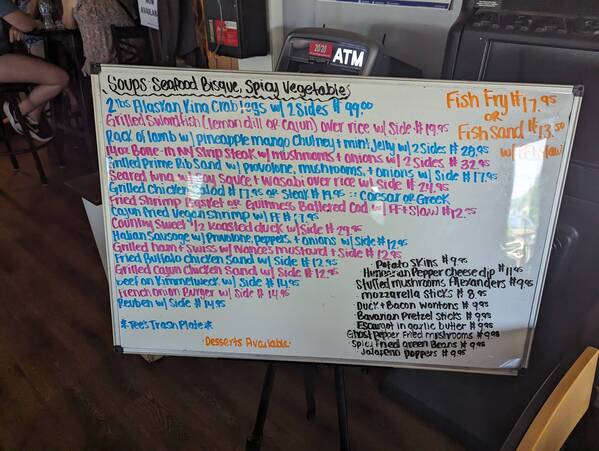 Soups: Seafood Bisque, Spicy Vegetable
2lbs Alaskan King Crab legs w/ 2 Sides $99.00
Grilled Swordfish (lemon dill or Cajun) over rice w/ Side $19.95
Rack of lamb w/ pineapple mango Chutney + mint Jelly w/ 2 Sides $28.95
14oz Bone-in NY Strip Steak w/ mushrooms + onions w/ 2 Sides $32.95
Grilled Prime Rib Sand w/ provolone, mushrooms, + onions w/ Side $17.95
Seared tuna w/ Soy Sauce + Wasabi over rice w/ Side $24.95
Grilled Chicken Salad $17.95 or Steak $19.95 :: Caesar or Greek
Fried Shrimp Basket or Guinness Battered Cod w/ FF + Slaw $12.95
Cajun Fried Vegan Shrimp w/ FF $17.95
Country Sweet 1/2 Roasted duck w/ Side $29.95
Italian Sausage w/ Provolone, peppers, + onions w/ Side $12.95
Grilled ham + Swiss w/ Nance's mustard + Side $12.95
Fried Buffalo chicken Sand w/ Side $12.95
Grilled Cajun Chicken Sand w/ Side $12.95
beef on Kimmelweck w/ Side $14.95
French onion Burger w/ Side $14.95
Reuben w/ Side $14.95
*Tee's Trash Plate*
Desserts Available
Fish Fry $17.95
OR
Fish Sand $13.50
Potato Skins $9.95
Hungarian Pepper cheese dip $11.95
Stuffed mushrooms Alexanders $9.95
mozzarella Sticks $8.95
Duck + Bacon Wontons $9.95
Bavarian Pretzel Sticks $9.95
Escargot in garlic butter $9.95
Ghost Pepper Fried mushrooms $9.95
Spicy Fried Green Beans $9.95
Jalapeno Poppers $9.95
ATM